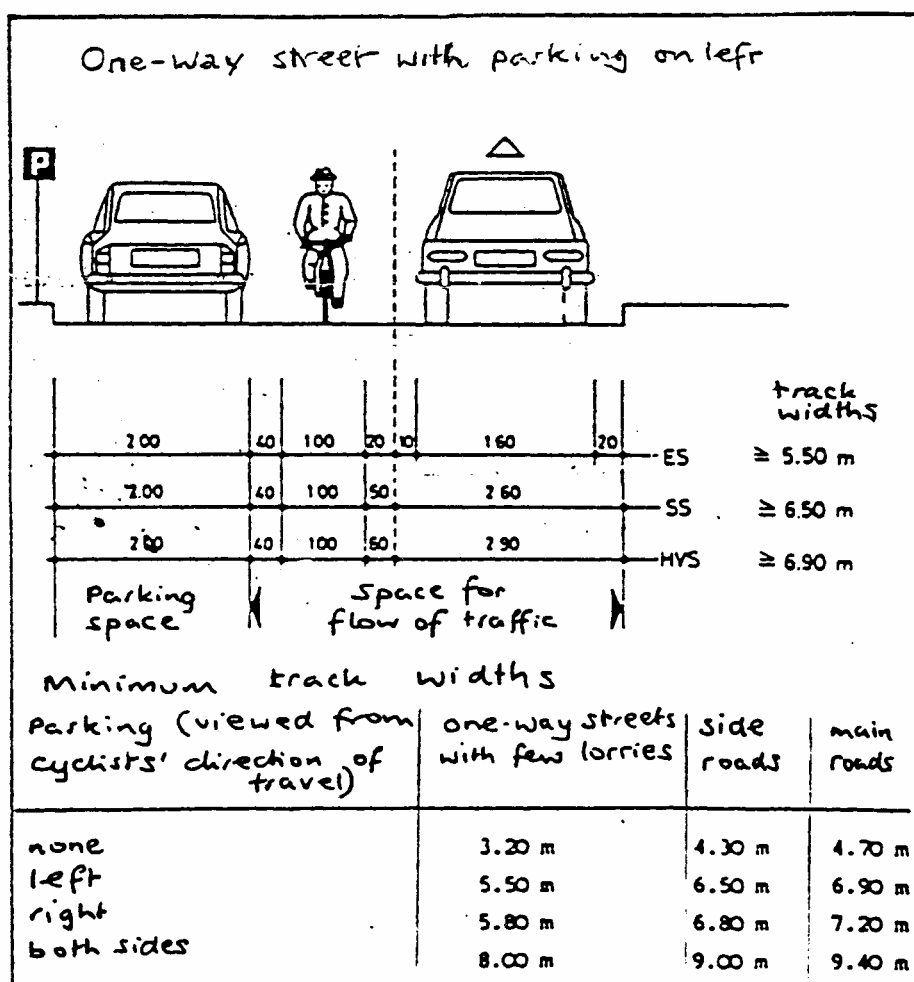 One-way street with parking on left
P
track
widths
2.00 40 1.00 20 10 1.60 20 ES ≧ 5.50 m
2.00 40 1.00 50 2.60 SS ≧ 6.50 m
2.00 40 1.00 60 2.90 HVS ≧ 6.90 m
Parking
space
Space for
flow of traffic
Minimum track widths
Parking (viewed from
cyclists' direction of
travel)
one-way streets
with few lorries
side
roads
main
roads
none 3.20 m 4.30 m 4.70 m
left 5.50 m 6.50 m 6.90 m
right 5.80 m 6.80 m 7.20 m
both sides 8.00 m 9.00 m 9.40 m